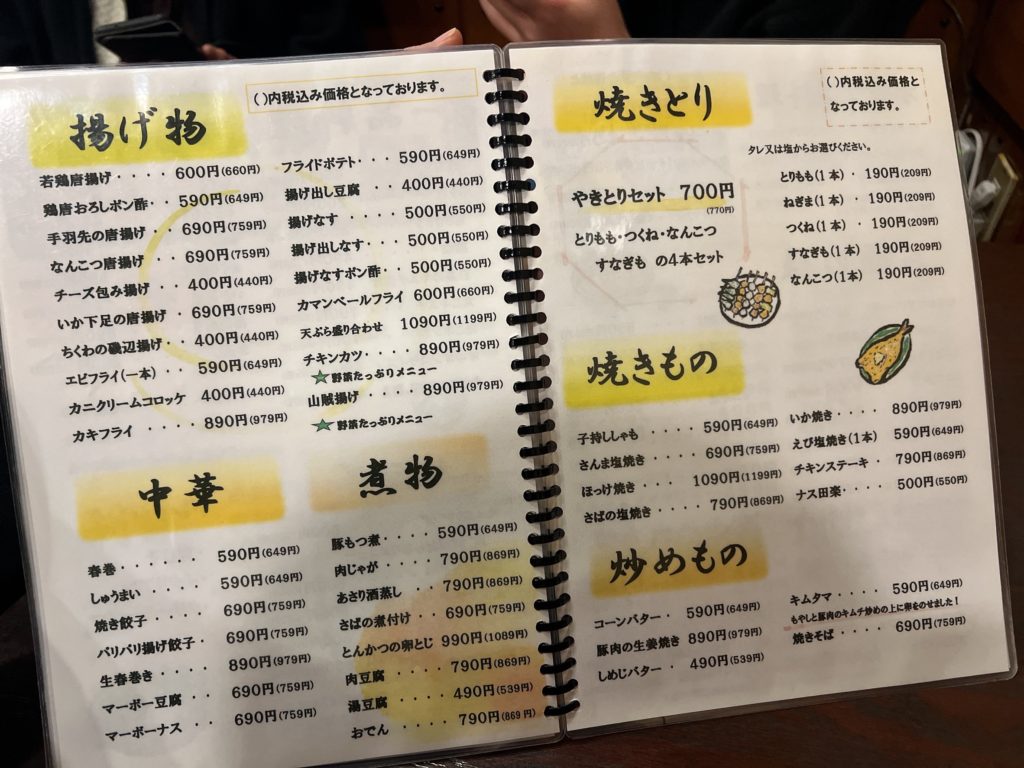 ( )内税込み価格となっております。
揚げ物
若鶏唐揚げ・・・・600円(660円)
鶏唐おろしポン酢・・590円(649円)
手羽先の唐揚げ・・690円(759円)
なんこつ唐揚げ・・690円(759円)
チーズ包み揚げ・・400円(440円)
いか下足の唐揚げ・690円(759円)
ちくわの磯辺揚げ・・400円(440円)
エビフライ(一本)・・590円(649円)
カニクリームコロッケ 400円(440円)
カキフライ・・・・890円(979円)
フライドポテト・・・590円(649円)
揚げ出し豆腐・・400円(440円)
揚げなす・・・・500円(550円)
揚げ出しなす・・・500円(550円)
揚げなすポン酢・・500円(550円)
カマンベールフライ 600円(660円)
天ぷら盛り合わせ 1090円(1199円)
チキンカツ・・・・890円(979円)
★野菜たっぷりメニュー
山賊揚げ・・・・890円(979円)
★野菜たっぷりメニュー
中華
春巻・・・・・・590円(649円)
しゅうまい・・・・590円(649円)
焼き餃子・・・・690円(759円)
パリパリ揚げ餃子・690円(759円)
生春巻き・・・・890円(979円)
マーボー豆腐・・690円(759円)
マーボーナス・・・690円(759円)
煮物
豚もつ煮・・・・590円(649円)
肉じゃが・・・・790円(869円)
あさり酒蒸し・・790円(869円)
さばの煮付け・・690円(759円)
とんかつの卵とじ 990円(1089円)
肉豆腐・・・・790円(869円)
湯豆腐・・・・490円(539円)
おでん・・・・・790円(869円)
焼きとり
( )内税込み価格と
なっております。
タレ又は塩からお選びください。
やきとりセット 700円
(770円)
とりもも・つくね・なんこつ
すなぎも の4本セット
とりもも(1本)・190円(209円)
ねぎま(1本)・190円(209円)
つくね(1本)・190円(209円)
すなぎも(1本)・190円(209円)
なんこつ(1本)190円(209円)
焼きもの
子持ししゃも・・・・590円(649円)
さんま塩焼き・・・・690円(759円)
ほっけ焼き・・・・1090円(1199円)
さばの塩焼き・・・・790円(869円)
いか焼き・・・・890円(979円)
えび塩焼き(1本)590円(649円)
チキンステーキ・790円(869円)
ナス田楽・・・・500円(550円)
炒めもの
コーンバター・・590円(649円)
豚肉の生姜焼き 890円(979円)
しめじバター・490円(539円)
キムタマ・・・・590円(649円)
もやしと豚肉のキムチ炒めの上に卵をのせました!
焼きそば・・・・690円(759円)